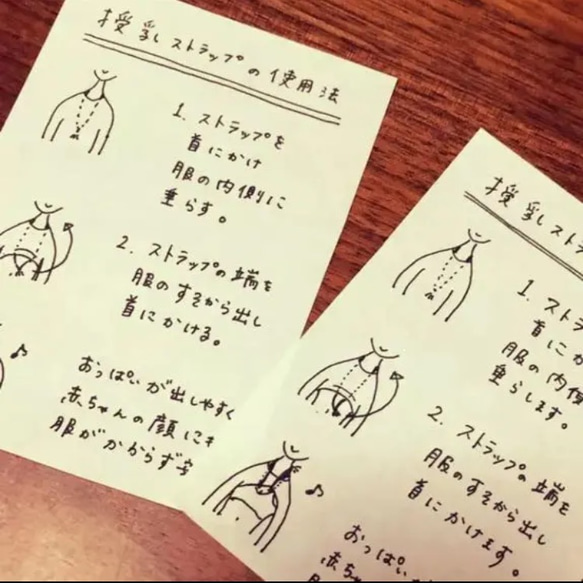 授乳ストラップの使用法
1. ストラップを
首にかけ
服の内側に
垂らす。
2. ストラップの端を
服のすそから出し
首にかける。
おっぱいが出しやすく
赤ちゃんの顔にも
服がかからず
授乳スト
1. ストラ
首にか
服の内側
垂らします。
2. ストラップの端を
服のすそから出し
首にかけます。
おっぱい
赤ちゃん